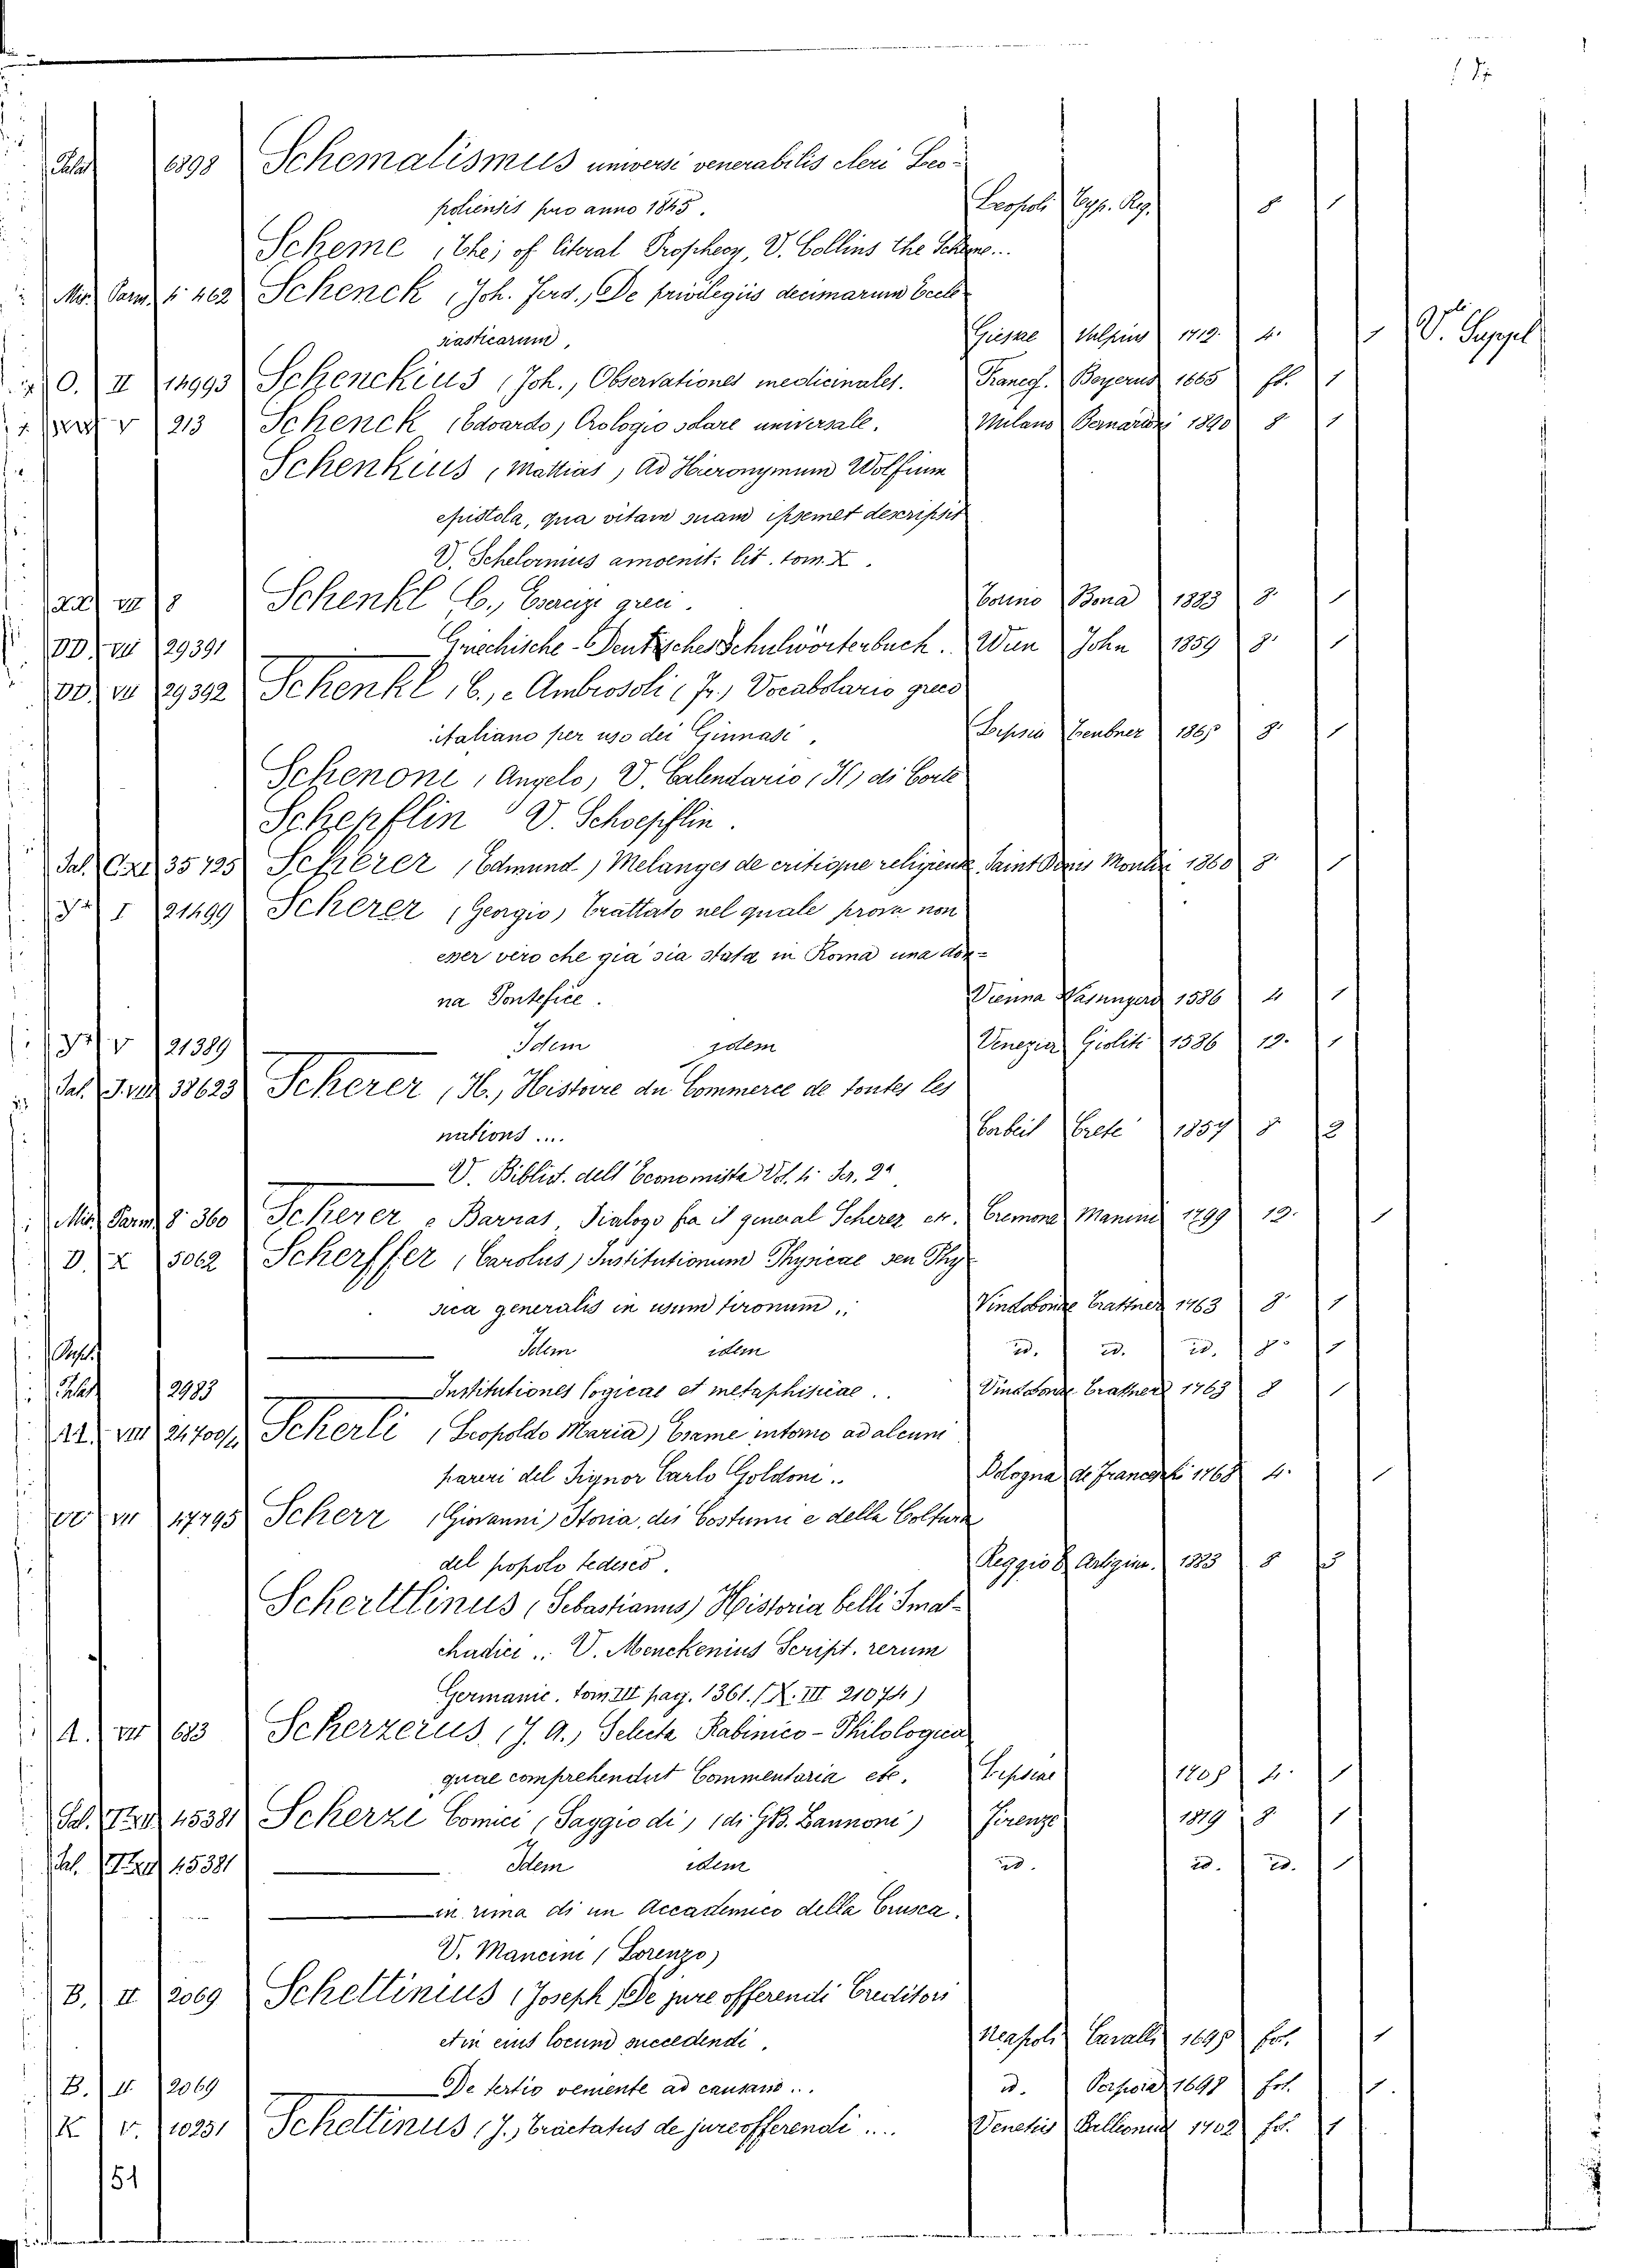 6898 Schematismus universi venerabilis cleri Leo-
poliensis pro anno 1845. Leopoli Typ. Reg. 8 1
Scheme (The) of literal Prophecy, V. Collins the Scheme...
Mis. Parm. 4° 462 Schenck (Joh. Ferd., De privilegiis decimarum Eccle-
siasticarum, Giesae Vulpius 1719. 4. 1 V. Suppel
O. II 14993 Schenckius (Joh., Observationes medicinales. Francof. Beyerus 1665 fo. 1
V 213 Schenck (Edoardo) Orologio solare universale. Milano Bernardoni 1890 8 1
Schenkius (Mathias) Ad Hieronymum Wolfium
epistola, qua vitam suam ipsemet descripsit
V. Schelornius amoenit. lit. tom. X.
VII 8 Schenkl C., Esercizi greci. Torino Bona 1883 8. 1
DD. VII 29391 Griechische-Deutsches Schulwörterbuch. Wien John 1859 8. 1
DD. VII 29392 Schenkl, C., e Ambrosoli (Fr.) Vocabolario greco
italiano per uso dei Ginnasi, Lipsia Teubner 186 8. 1
Schenoni (Angelo) V. Calendario (Il) di Corte
Schepflin V. Schoepflin.
Sal. 35725 Scherer (Edmund) Melanges de critique religieuse. Saint Denis Moulin 1860 8. 1
I 21499 Scherer (Georgio) Trattato nel quale prova non
esser vero che già sia stata in Roma una don-
na Pontefice. Vienna Nasungero 1586 4 1
V 21389 Idem idem Venezia Gioliti 1586 12. 1
Sal. 38623 Scherer (H., Histoire du Commerce de toutes les
nations.... Corbeil Crete 1857 8 2
V. Bibliot. dell'Economista Vol. 4. Ser. 2ª.
Mis. Parm. 8° 360 Scherer e Barras, Dialogo fra il general Scherer ec. Cremona Manini 1799 12. 1
D. X 5062 Scherffer (Carolus) Institutionum Physicae seu Phy-
sica generalis in usum tironum, Vindobonae Trattner 1763 8. 1
Idem idem id. id. id. 8. 1
2983 Institutiones logicae et metaphisicae.. Vindobonae Trattner 1763 8 1
VIII Scherli (Leopoldo Maria) Esame intorno ad alcuni
pareri del Signor Carlo Goldoni.. Bologna de Franceschi 1768 4. 1
VII 47795 Scherr (Giovanni) Storia dei Costumi e della Coltura
del popolo tedesco. Reggio E. Artigian. 1883 8 3
Scherttlinus (Sebastianus) Historia belli Smal-
chadici.. V. Menckenius Script. rerum
Germanic. tom III pag. 1361. (X. III 21074)
A. VII 683 Scherzerus (J. A., Selecta Rabinico-Philologica
quae comprehendunt Commentaria etc. Lipsiae 170 4. 1
Sal. 45381 Scherzi Comici (Saggio di) (di G.B. Zannoni) Firenze 1819 8 1
Sal. 45381 Idem idem id. id. id. 1
in rima di un Accademico della Crusca.
V. Mancini (Lorenzo)
B. II 2069 Schettinius (Joseph) De jure offerendi Creditori
et in eius locum succedendi. Neapoli Cavalli 169 fol. 1
B. II 2069 De tertio veniente ad causam... id. 1698 fol. 1.
K V. 10231 Schettinus (J.) Tractatus de jure offerendi.... Venetiis Balleonius 1702 fol. 1
51